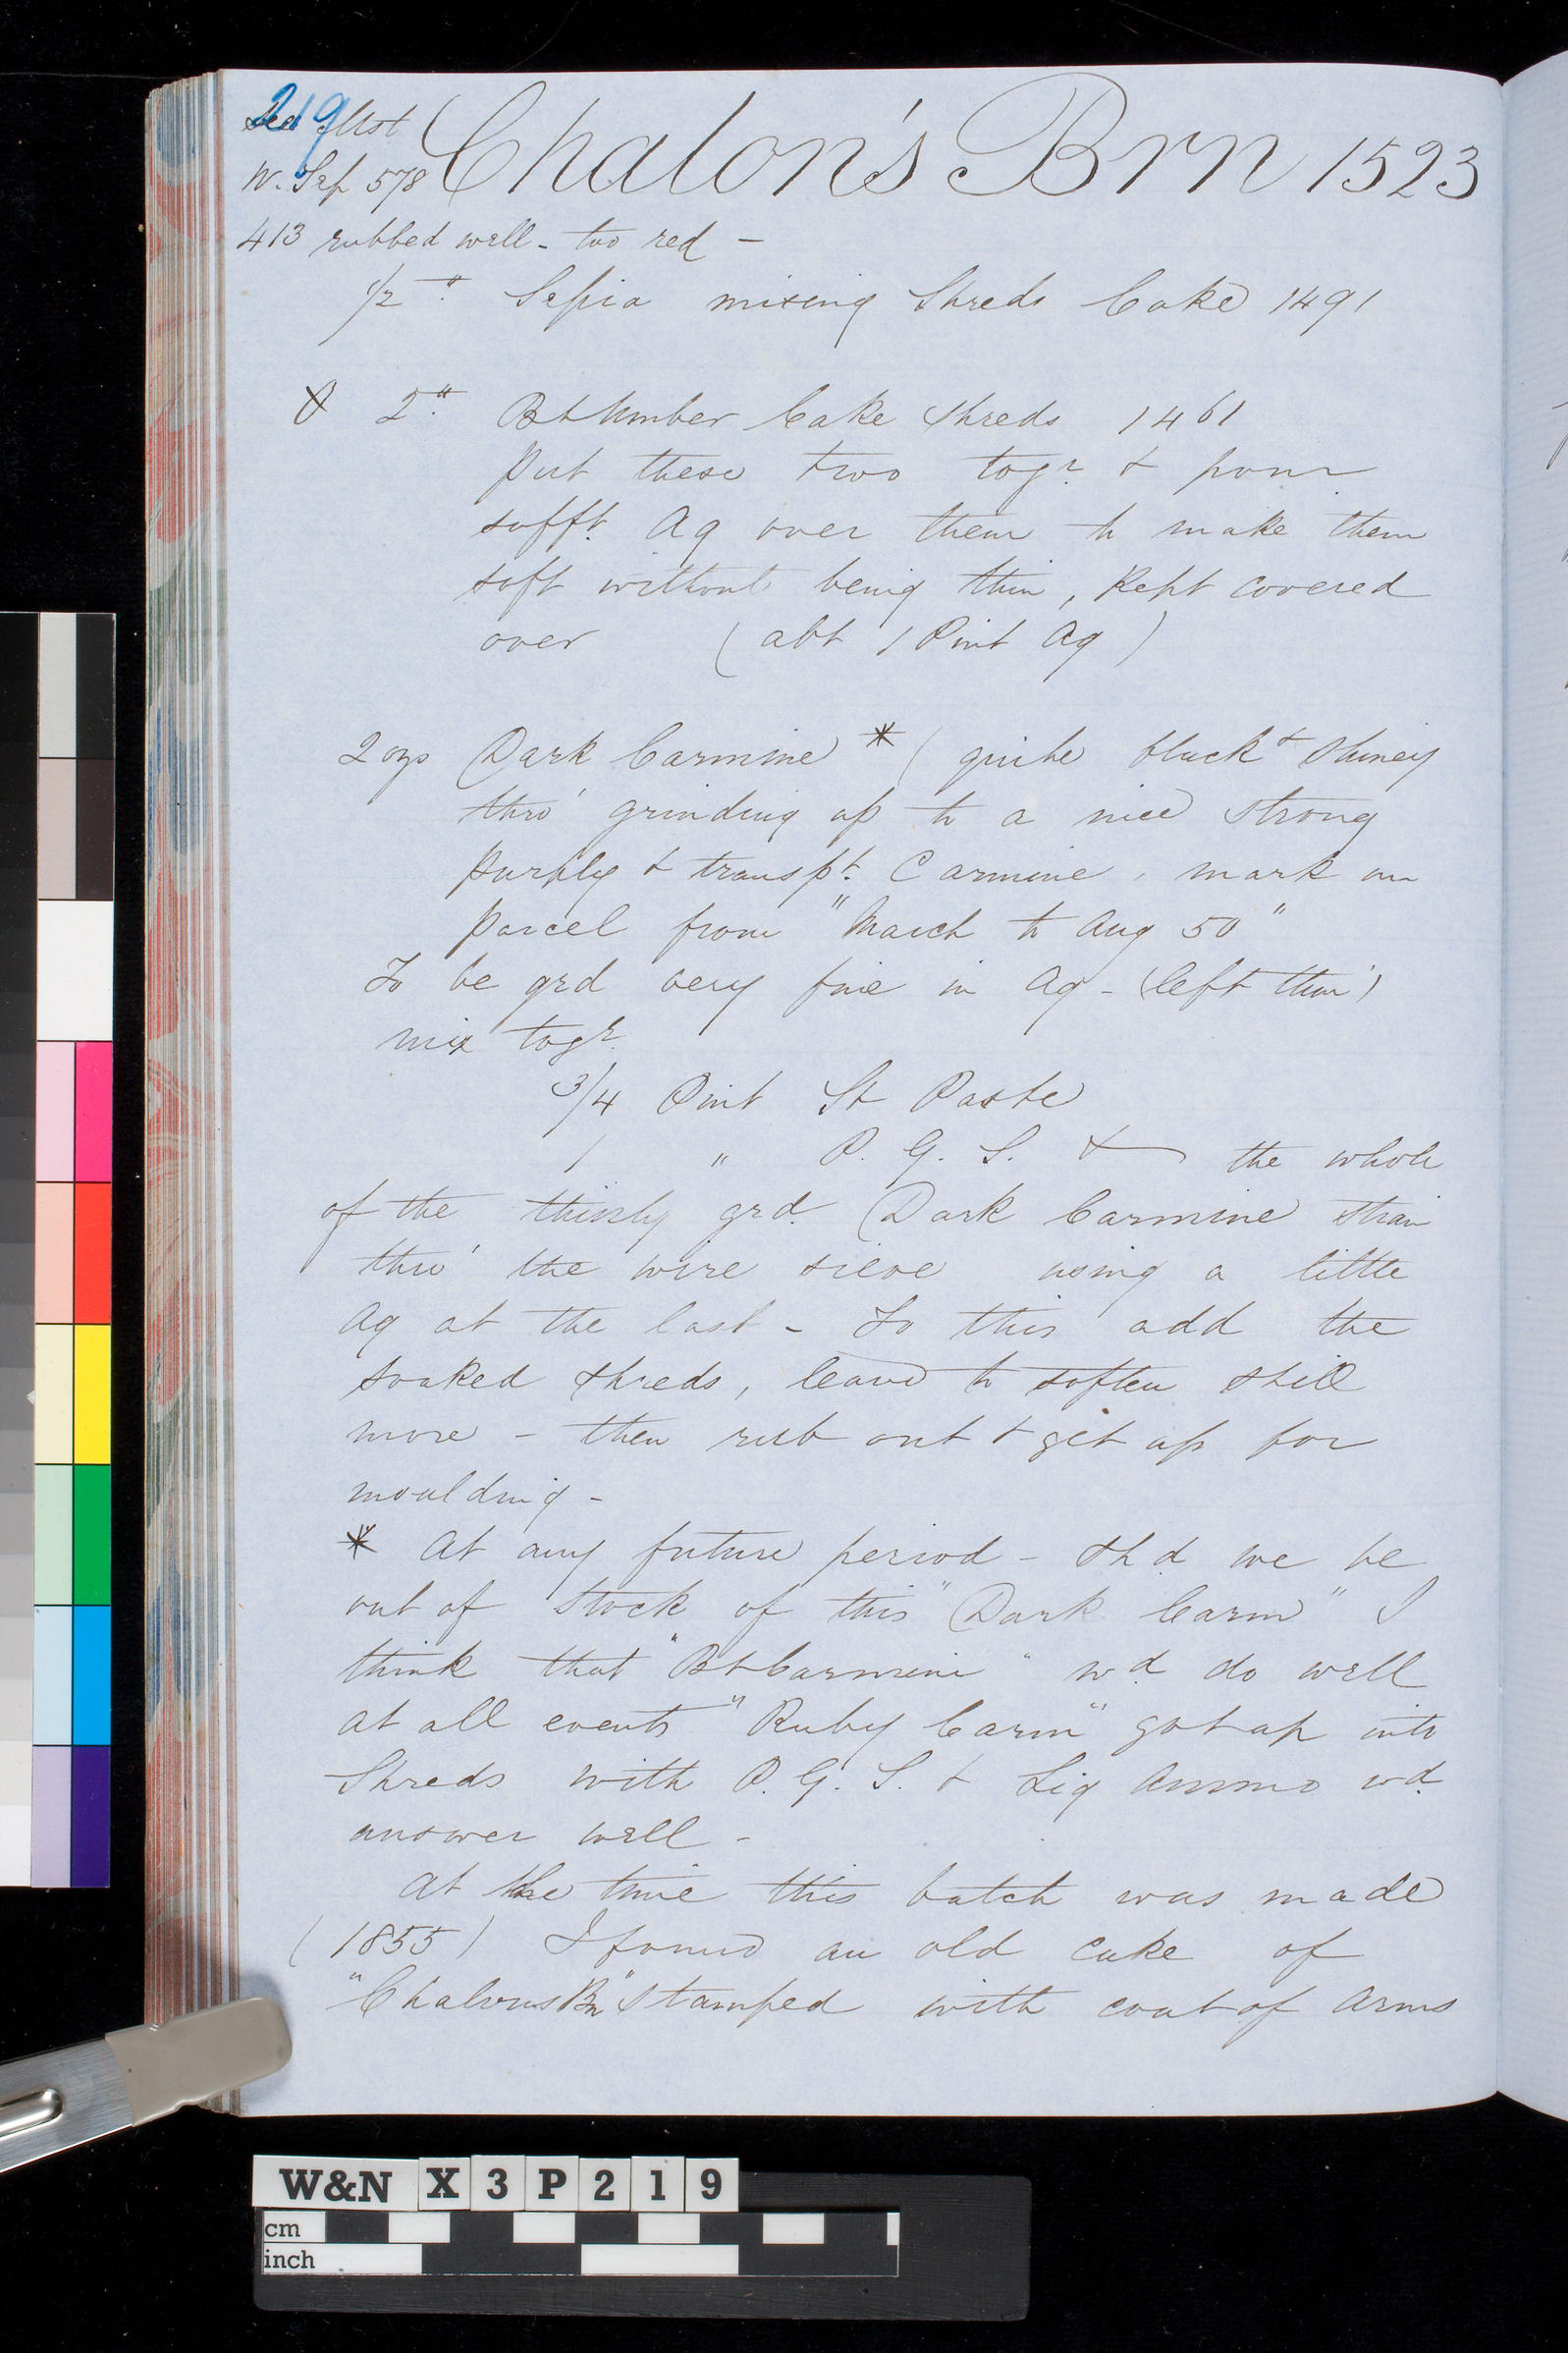 219
Chalon's Brn 1523
W. Sep 578
413 rubbed well - too red -
1/2 " Sepia mixing Shreds Cake 1491
2 " Bt Umber Cake Shreds 1461
put these two togr & pour
sufft. Aq over them to make them
soft without being thin, kept covered
over (abt 1 Pint Aq)
2 ozs Dark Carmine * (quite black & Shiney
thro' grinding up to a nice strong
purply & transpt. Carmine, mark on
parcel from "March to Aug 50"
To be grd very fine in Aq - (left thin)
mix togr
3/4 Pint St Paste
1 " P. G. S. & the whole
of the thinly grd. Dark Carmine strain
thro' the wire sieve using a little
Aq at the last - To this add the
soaked shreds, leave to soften still
more - then rub out & get up for
moulding -
* At any future period - shd we be
out of Stock of this "Dark Carm" I
think that "Bt Carmine" wd do well
at all events "Ruby Carm" got up into
Shreds with P. G. S. & Liq Ammo wd.
answer well -
At the time this batch was made
(1855) I found an old cake of
"Chalons Bn" stamped with coat of Arms
W&N X3P219
cm
inch